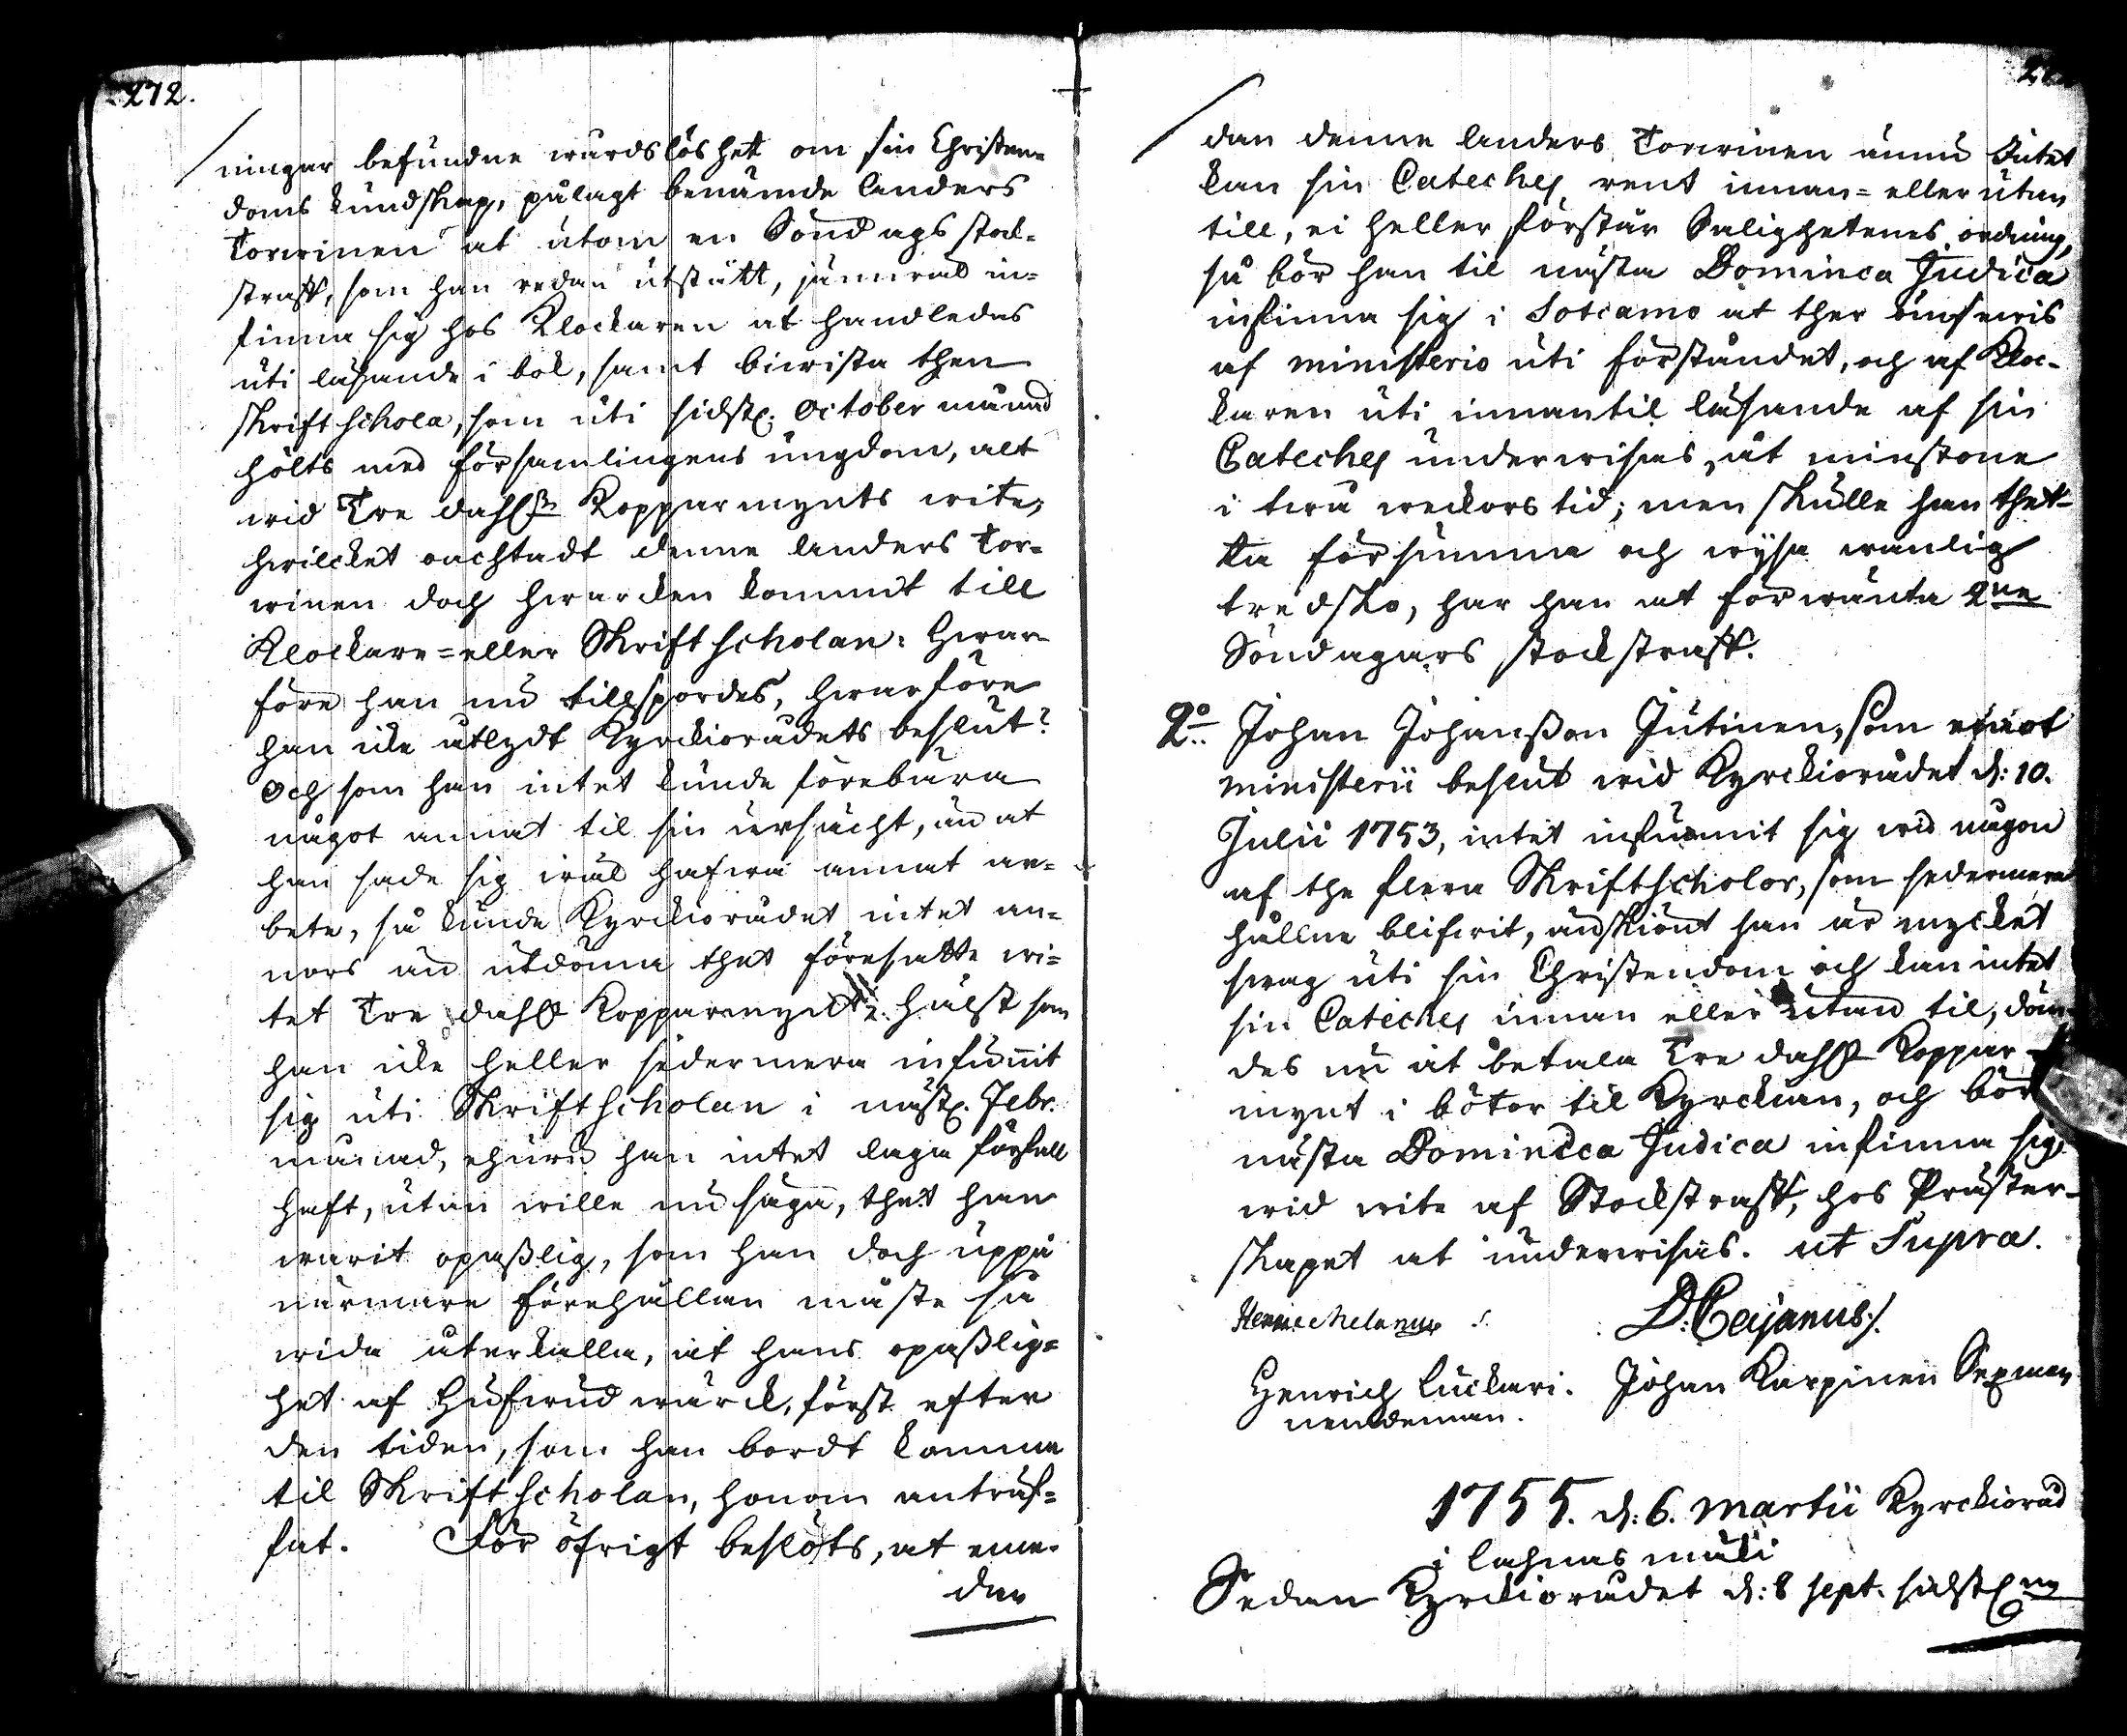 272.
ningar befundne wårdslöshet om sin Christen=
doms kundskap, pålagt benämde Anders
Torvinen at utom en Söndags stock=
straff, som han redan utstått, jämwäl in=
finna sig hos Klockaren at handledas
uti läsande i bok, samt biwista then
skriftschola, som uti sidstl. October månad
hölts med församlingens ungdom, alt
wid Tre dahlr Kopparmynts wite;
hwilcket oachtadt denne Anders Tor=
winen doch hwarcken kommit till
Klockare= eller Skriftscholan: Hwar=
före han nu tillspordes, hwarföre
han icke åtlydt Kyrckiorådets beslut?
Och som han intet kunde förebära
något annat til sin ursächt, än at
han sade sig wäl hafwa annat ar=
bete, så kunde Kyrckiorådet intet an=
nors än utdöma thet försatte wi=
tet Tre dahlr Kopparmynt: hälst som
han icke heller sedermera infunnit
sig uti Skriftscholan i nästl. Febr.
månad, ehuru han intet laga förfall
haft, utan wille nu säga, thet han
warit opasslig, som han doch uppå
närmare förehållan måste så
wida återkalla, at hans opasslig=
het af Hufwudwärck, först efter
den tiden, som han bordt komma
til Skriftscholan, honom anträf=
fat. För öfrigt beslöts, at eme=
dan
dan denne Anders Torwinen ännu Intet
kan sin Cateches rent innan= eller utan
till, ei heller förstår Salighetenes ordning,
så bör han til nästa Dominca Judica
infinna sig i Sotcamo at ther
af ministerio uti förståndet, och af Kloc=
karen uti innantil läsande af sin
Cateches underwisas, åt minstone
i twå weckors tid; men skulle han thet=
ta försumma och wysa wanlig
tredsko, har han at förwänta 2ne
Söndagars stockstraff.
2o. Johan Johansson Jutinen, som emot
ministerii beslut wid Kyrckiorådet d: 10.
Julii 1753, intet infunnit sig wid någon
af the flera Skriftscholor, som sedermera
hållne blifwit, änskiönt han är mycket
swag uti sin Christendom och kan intet
sin Cateches innan eller utan til, döm=
des nu at betala Tre dahlr Koppar=
mynt i böter til Kyrckian, och bör
nästa Dominica Judica infinna sig,
wid wite af Stockstraff, hos Präster=
skapet at underwisas. ut Supra.
D: Cajanus./.
Henrich Luckari. Johan Karpinen Sexman
nemdeman.
1755. d: 6. Martii Kyrckioråd
i Lahnas mäki
Sedan Kyrckiorådet d: 8 sept. sidstl.